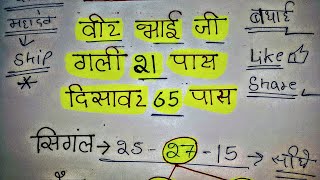 महादेव
↓
Ship
*
वीर भाई जी
गली 21 पास
दिसावर 65 पास
बधाई
Like
Share
सिगंल → 25 - 27 - 15 →